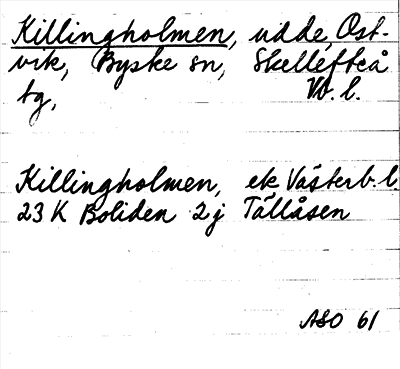 Killingholmen, udde, Ost-
vik, Byske sn, Skellefteå
tg, Vb. l.
Killingholmen, ek Västerb. l.
23 K Boliden 2 j Tällåsen
ASO 61